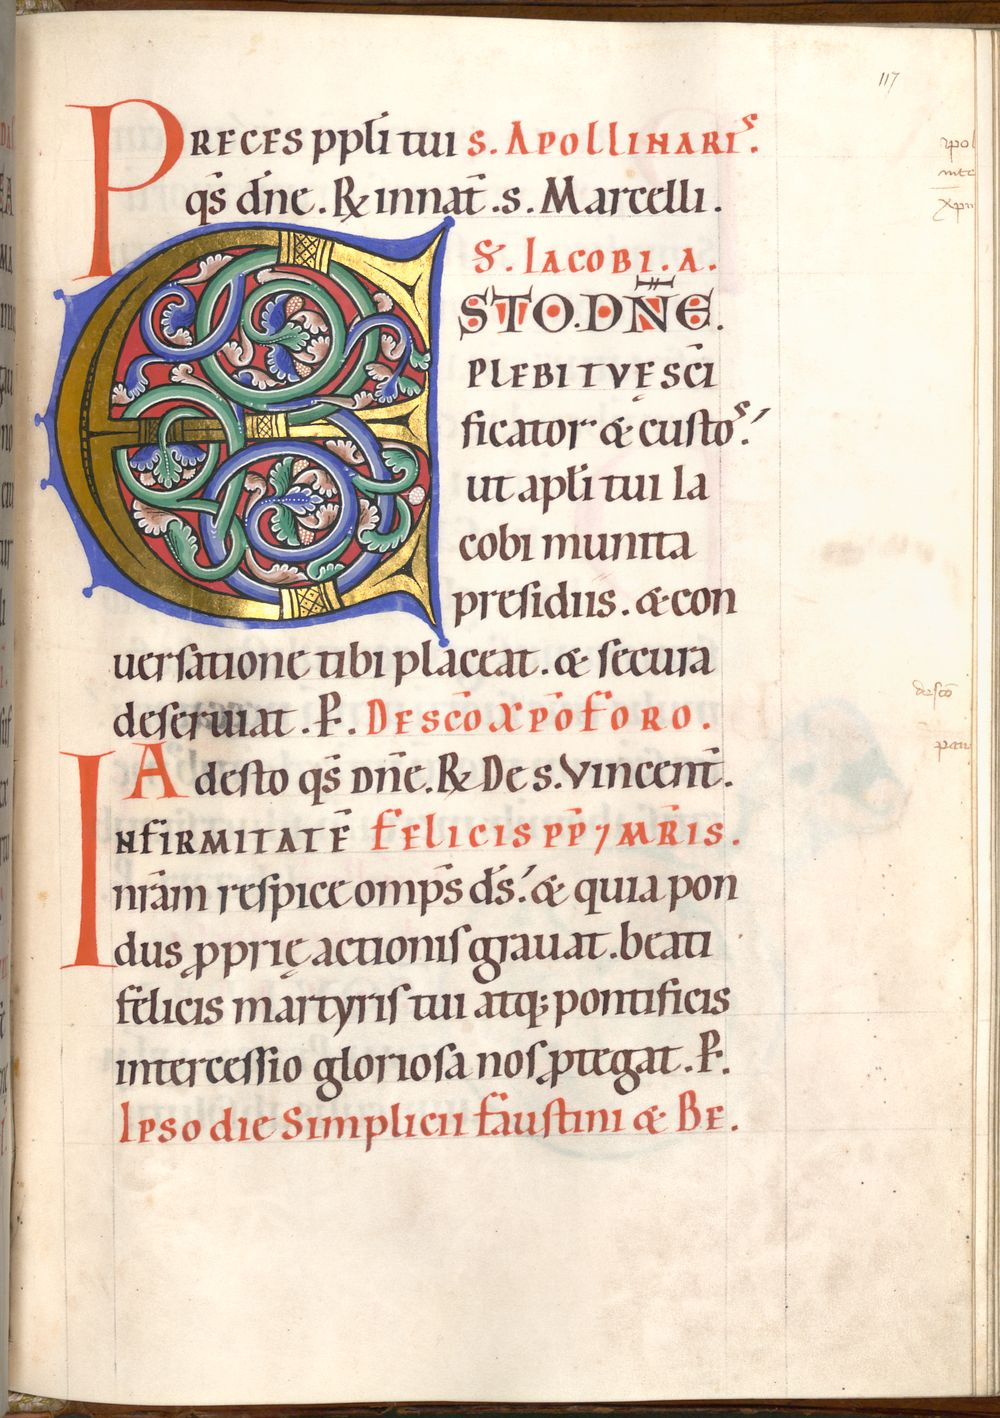 117
PRECES ppłi tui S. APOLLINARIS.
qs̄ dn̄e. R̵ innat̄. s. Marcelli.
S. IACOBI. A.
ESTO. DN̄E.
PLEBI TVĘ SCĪ
ficator & custoˢ.
ut apłi tui Ia
cobi munita
presidiis. & con
uersatione tibi placeat. & secura
deseruiat. P. DE SCŌ XP̄OFORO.
Adesto qs̄ dn̄e. R̵ De s. Vincent̄.
INFIRMITATĒ FELICIS PP̄ ⁊ MR̄IS.
nr̄am respice omp̄s ds̄. & quia pon
dus ꝓprię actionis grauat. beati
felicis martyris tui atq; pontificis
intercessio gloriosa nos ꝓtegat. P.
Ipso die Simplicii faustini & BE.
apol
mtē
xpri
de scō
pan